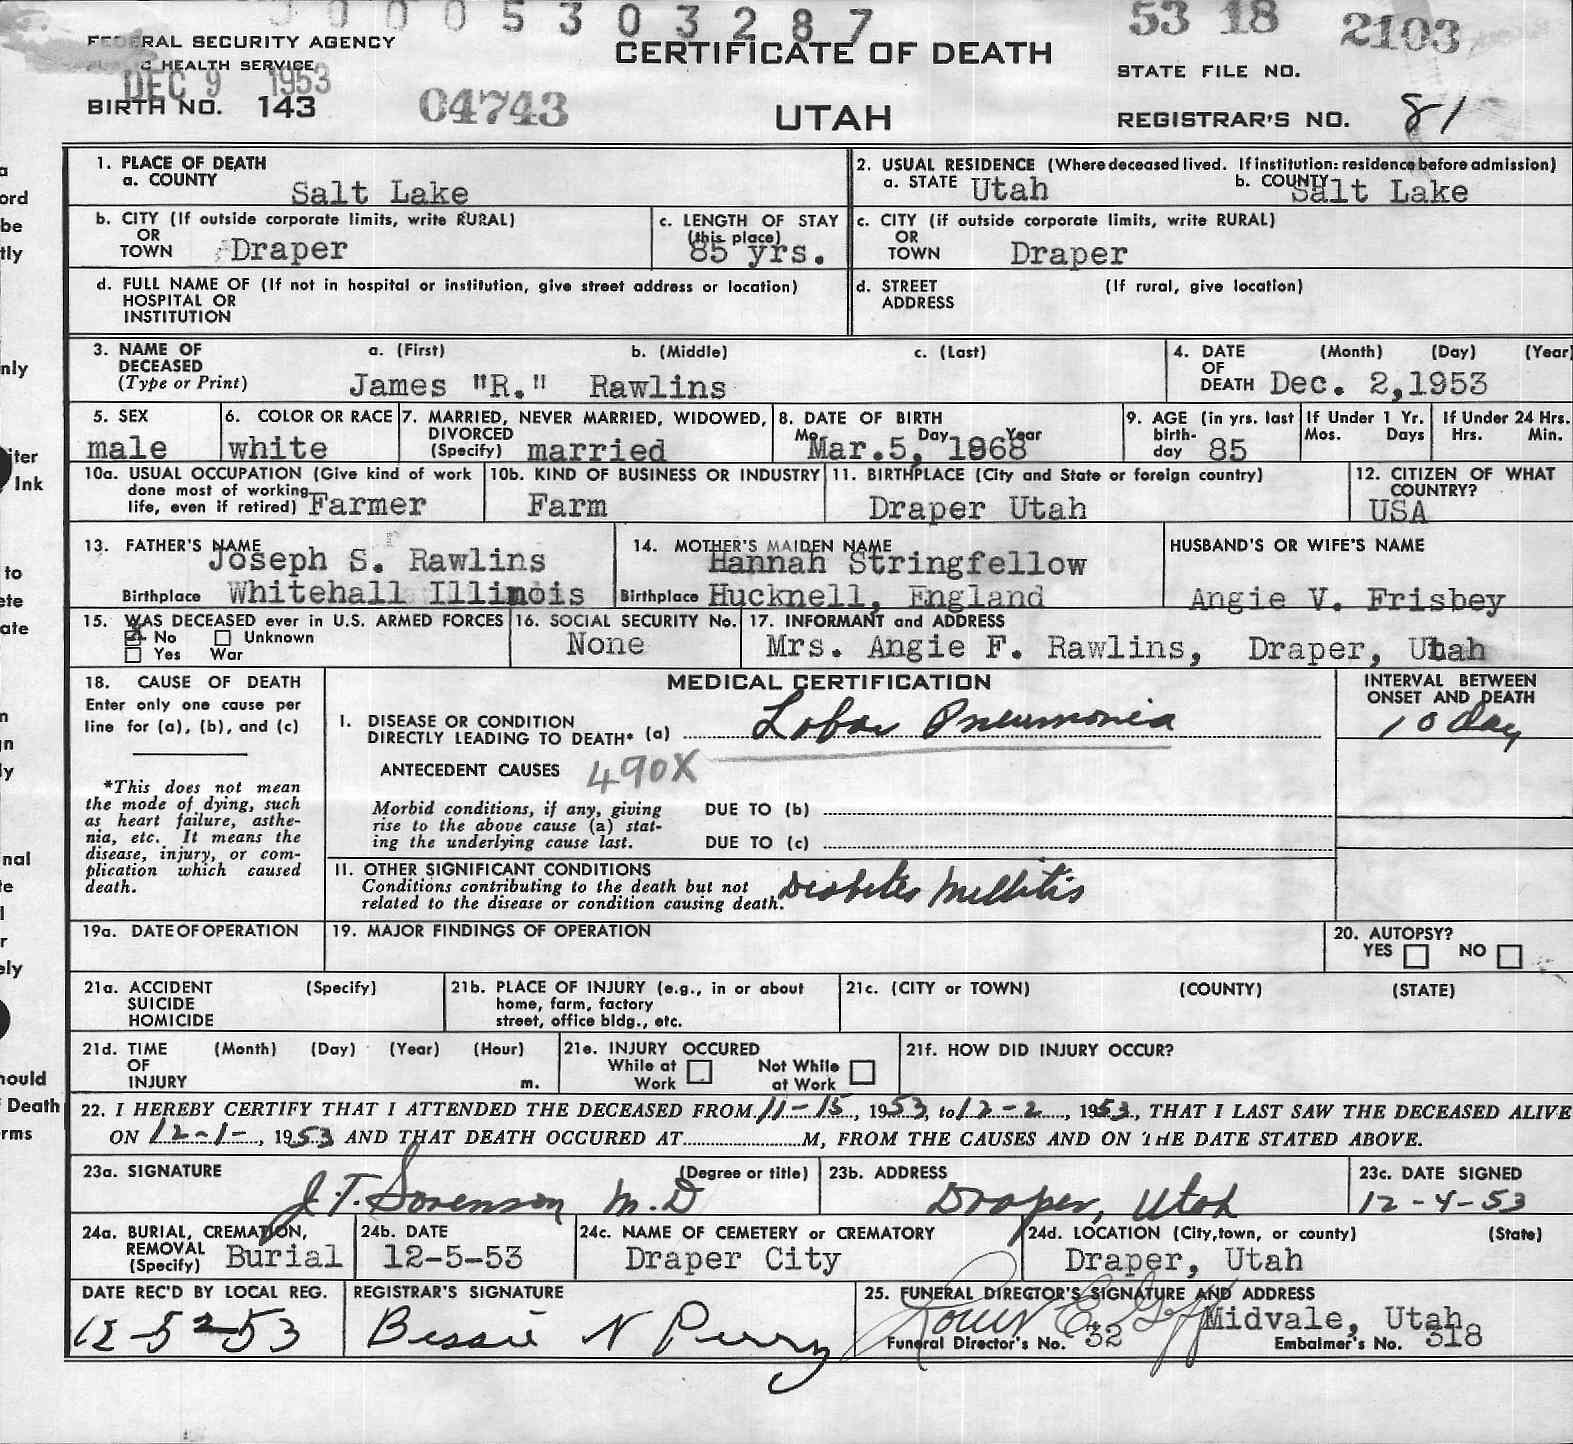 5 3 0 3 2 8 7
53 18 2103
FEDERAL SECURITY AGENCY
CERTIFICATE OF DEATH
HEALTH SERVICE
DEC 9 1953
STATE FILE NO.
BIRTH NO. 143
04743
UTAH
REGISTRAR'S NO. 81
1. PLACE OF DEATH
a. COUNTY Salt Lake
2. USUAL RESIDENCE (Where deceased lived. If institution: residence before admission)
a. STATE Utah b. COUNTY Salt Lake
b. CITY (If outside corporate limits, write RURAL)
OR
TOWN Draper
c. LENGTH OF STAY
(this place)
85 yrs.
c. CITY (if outside corporate limits, write RURAL)
OR
TOWN Draper
d. FULL NAME OF (If not in hospital or institution, give street address or location)
HOSPITAL OR
INSTITUTION
d. STREET (If rural, give location)
ADDRESS
3. NAME OF
DECEASED
(Type or Print)
a. (First) b. (Middle) c. (Last)
James "R." Rawlins
4. DATE (Month) (Day) (Year)
OF
DEATH Dec. 2,1953
5. SEX
male
6. COLOR OR RACE
white
7. MARRIED, NEVER MARRIED, WIDOWED,
DIVORCED
(Specify) married
8. DATE OF BIRTH
Mo. Day Year
Mar.5, 1868
9. AGE (in yrs. last
birth-
day 85
If Under 1 Yr.
Mos. Days
If Under 24 Hrs.
Hrs. Min.
10a. USUAL OCCUPATION (Give kind of work
done most of working
life, even if retired) Farmer
10b. KIND OF BUSINESS OR INDUSTRY
Farm
11. BIRTHPLACE (City and State or foreign country)
Draper Utah
12. CITIZEN OF WHAT
COUNTRY?
USA
13. FATHER'S NAME
Joseph S. Rawlins
Birthplace Whitehall Illinois
14. MOTHER'S MAIDEN NAME
Hannah Stringfellow
Birthplace Hucknell, England
HUSBAND'S OR WIFE'S NAME
Angie V. Frisbey
15. WAS DECEASED ever in U.S. ARMED FORCES
No Unknown
Yes War
16. SOCIAL SECURITY No.
None
17. INFORMANT and ADDRESS
Mrs. Angie F. Rawlins, Draper, Utah
18. CAUSE OF DEATH
Enter only one cause per
line for (a), (b), and (c)
*This does not mean
the mode of dying, such
as heart failure, asthe-
nia, etc. It means the
disease, injury, or com-
plication which caused
death.
MEDICAL CERTIFICATION
INTERVAL BETWEEN
ONSET AND DEATH
I. DISEASE OR CONDITION
DIRECTLY LEADING TO DEATH* (a) Lobar Pneumonia
10 day
ANTECEDENT CAUSES 490X
Morbid conditions, if any, giving
rise to the above cause (a) stat-
ing the underlying cause last.
DUE TO (b)
DUE TO (c)
II. OTHER SIGNIFICANT CONDITIONS
Conditions contributing to the death but not
related to the disease or condition causing death.
Diabetes Mellitis
19a. DATE OF OPERATION
19. MAJOR FINDINGS OF OPERATION
20. AUTOPSY?
YES NO
21a. ACCIDENT (Specify)
SUICIDE
HOMICIDE
21b. PLACE OF INJURY (e.g., in or about
home, farm, factory
street, office bldg., etc.
21c. (CITY or TOWN) (COUNTY) (STATE)
21d. TIME (Month) (Day) (Year) (Hour)
OF
INJURY m.
21e. INJURY OCCURED
While at Work
Not While at Work
21f. HOW DID INJURY OCCUR?
22. I HEREBY CERTIFY THAT I ATTENDED THE DECEASED FROM 11-15, 1953, to 12-2, 1953, THAT I LAST SAW THE DECEASED ALIVE
ON 12-1-, 1953 AND THAT DEATH OCCURED AT M, FROM THE CAUSES AND ON THE DATE STATED ABOVE.
23a. SIGNATURE (Degree or title)
J.T. Sorenson M.D
23b. ADDRESS
Draper, Utah
23c. DATE SIGNED
12-4-53
24a. BURIAL, CREMATION,
REMOVAL
(Specify) Burial
24b. DATE
12-5-53
24c. NAME OF CEMETERY or CREMATORY
Draper City
24d. LOCATION (City, town, or county) (State)
Draper, Utah
DATE REC'D BY LOCAL REG.
12-5-53
REGISTRAR'S SIGNATURE
Bessie N Perry
25. FUNERAL DIRECTOR'S SIGNATURE AND ADDRESS
Midvale, Utah
Funeral Director's No. 32 Embalmer's No. 318